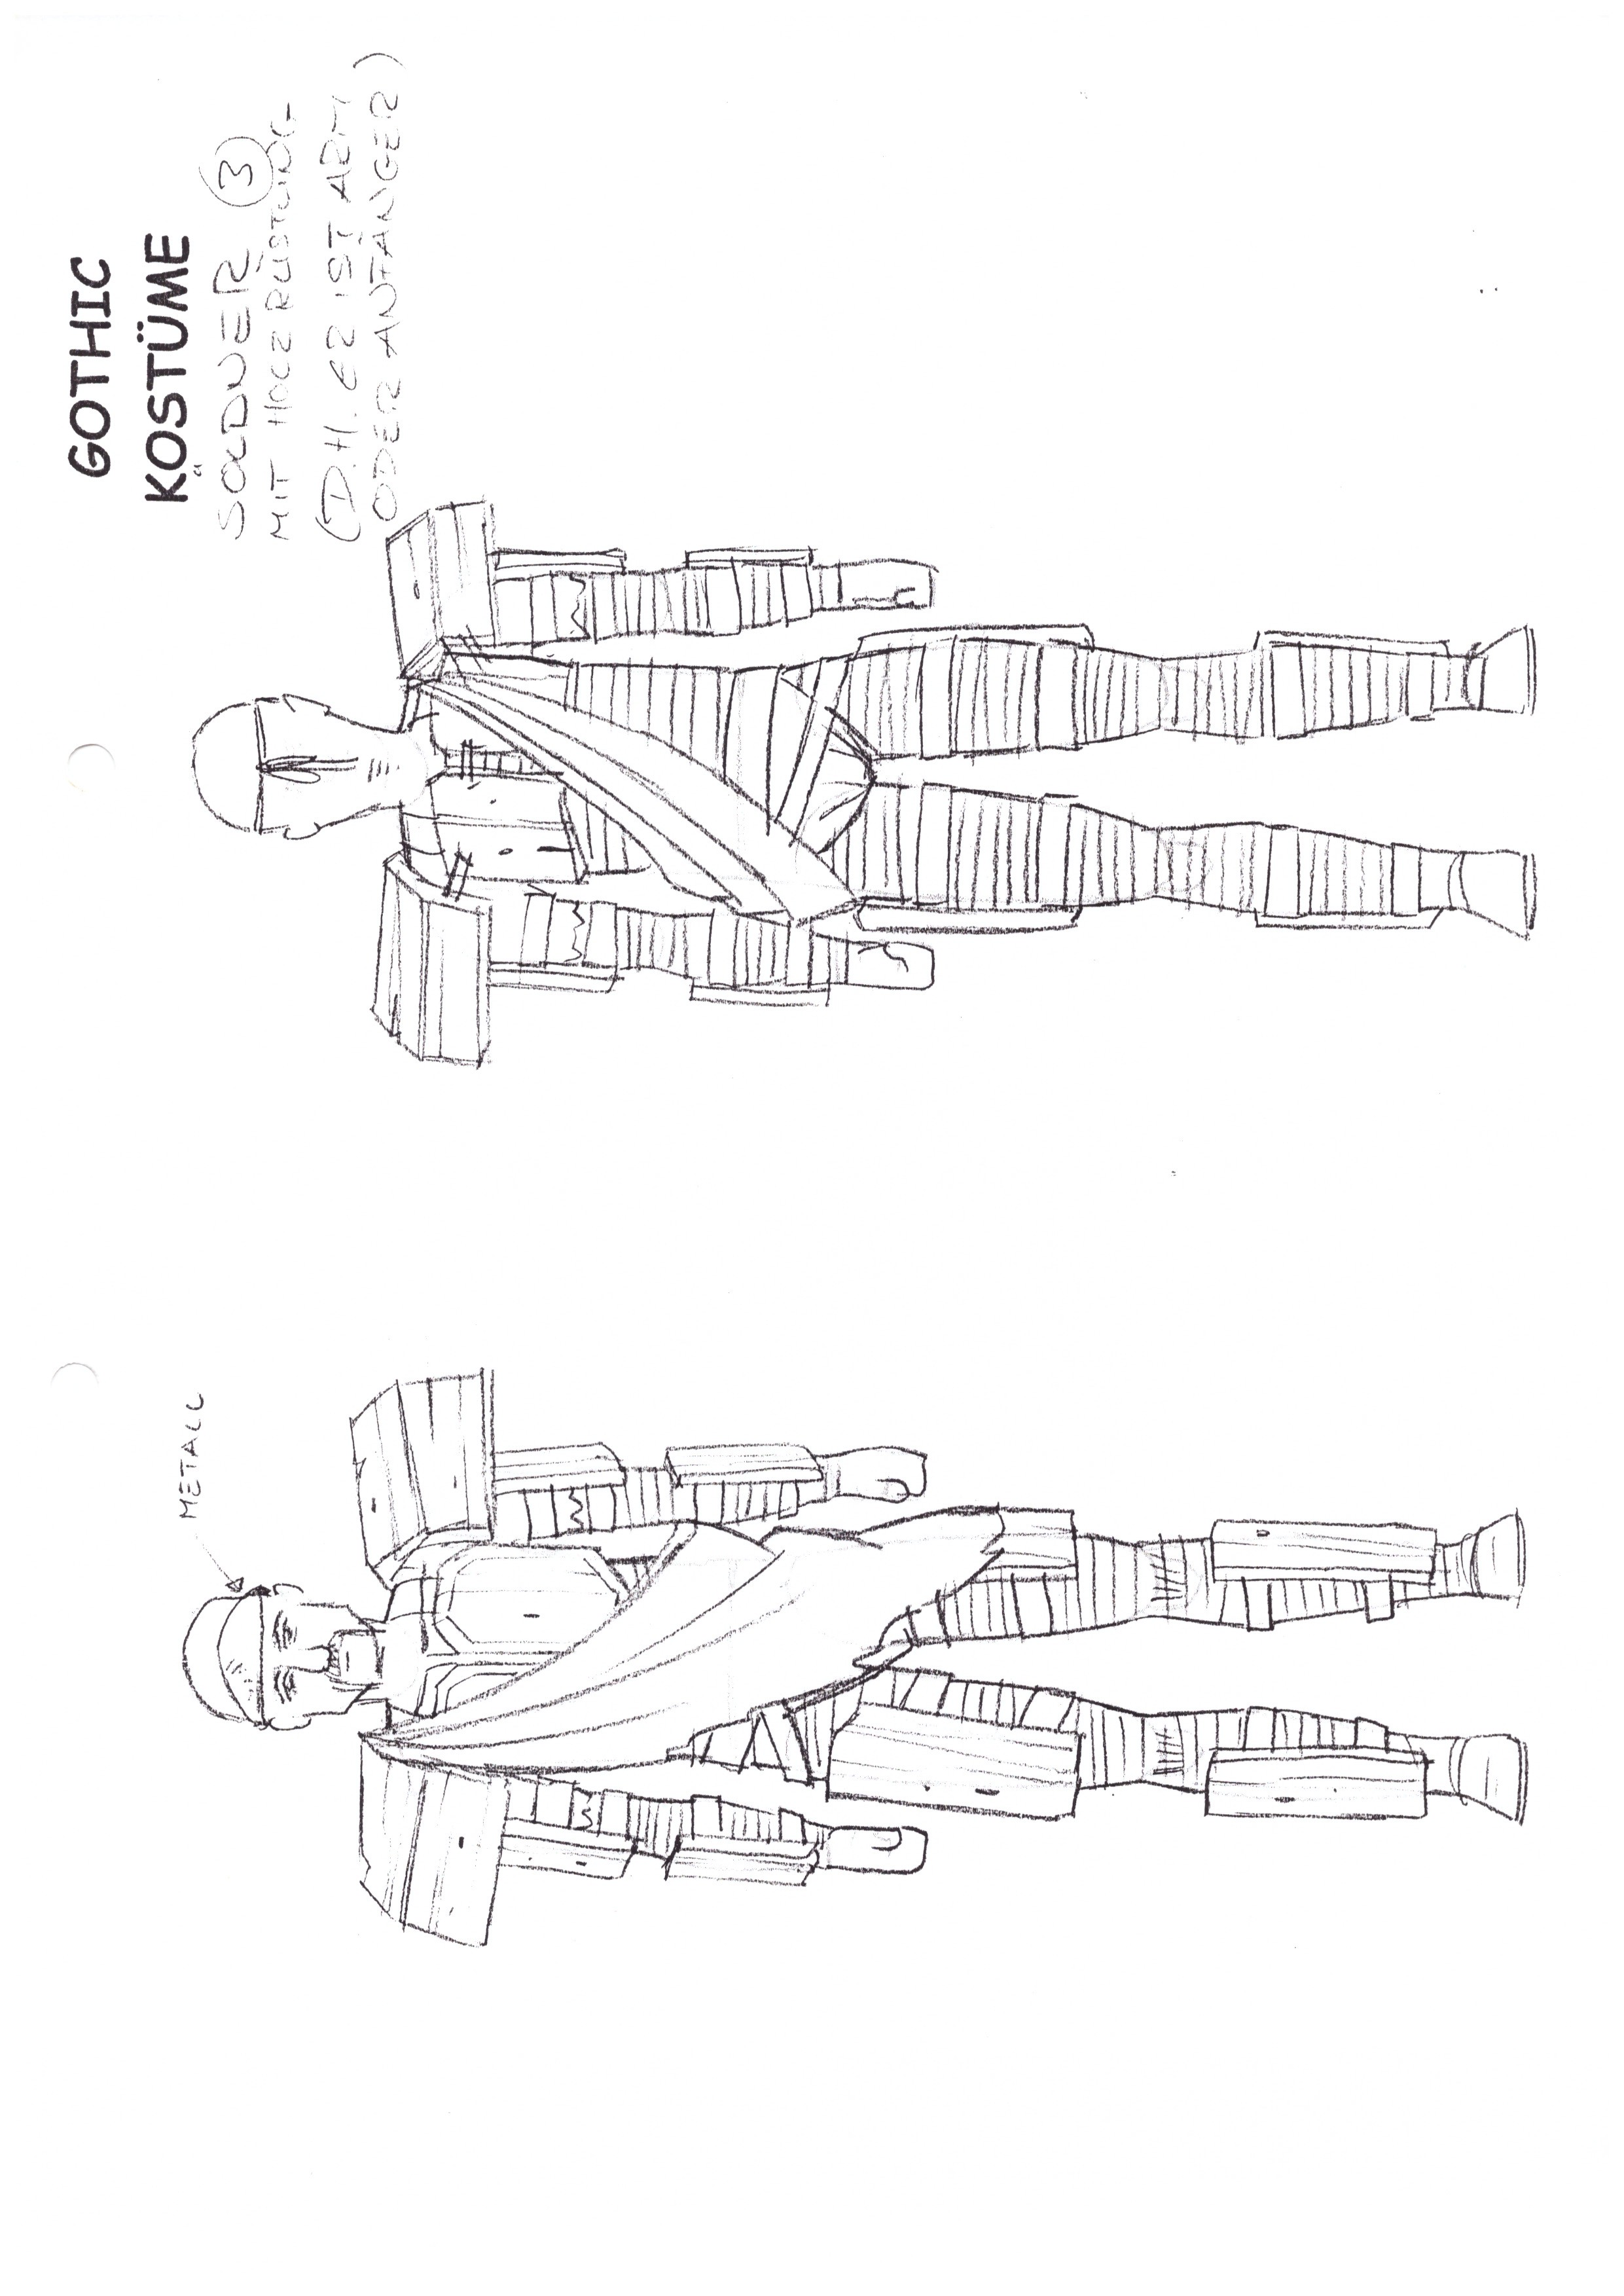 GOTHIC
KOSTÜME
SÖLDNER ③
MIT HOLZRÜSTUNG
(D.H. ER IST ARM
ODER ANFÄNGER)
METALL